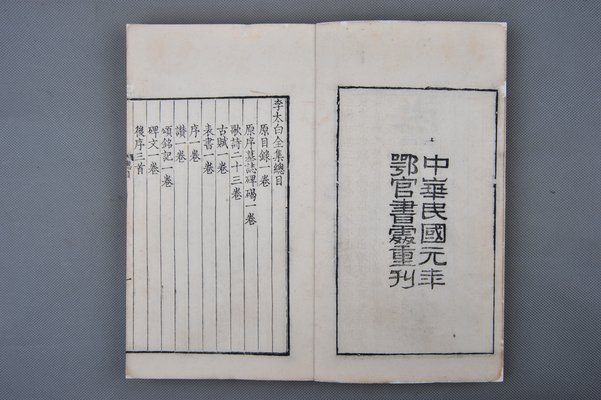 中華民國元年
鄂官書處重刊
李太白全集總目
原目錄一卷
原序墓誌碑碣一卷
歌詩二十三卷
古賦一卷
表書一卷
序一卷
讚一卷
頌銘記一卷
碑文一卷
後序三首